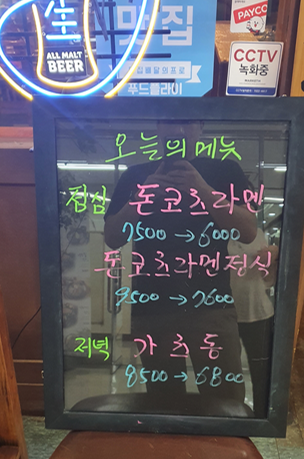 生
ALL MALT
BEER
맛집
배달의프로
푸드플라이
PAYCO
CCTV
녹화중
오늘의 메뉴
점심 돈코츠라멘
7500→6000
돈코츠라멘정식
9500→7600
저녁 가츠동
8500→6800